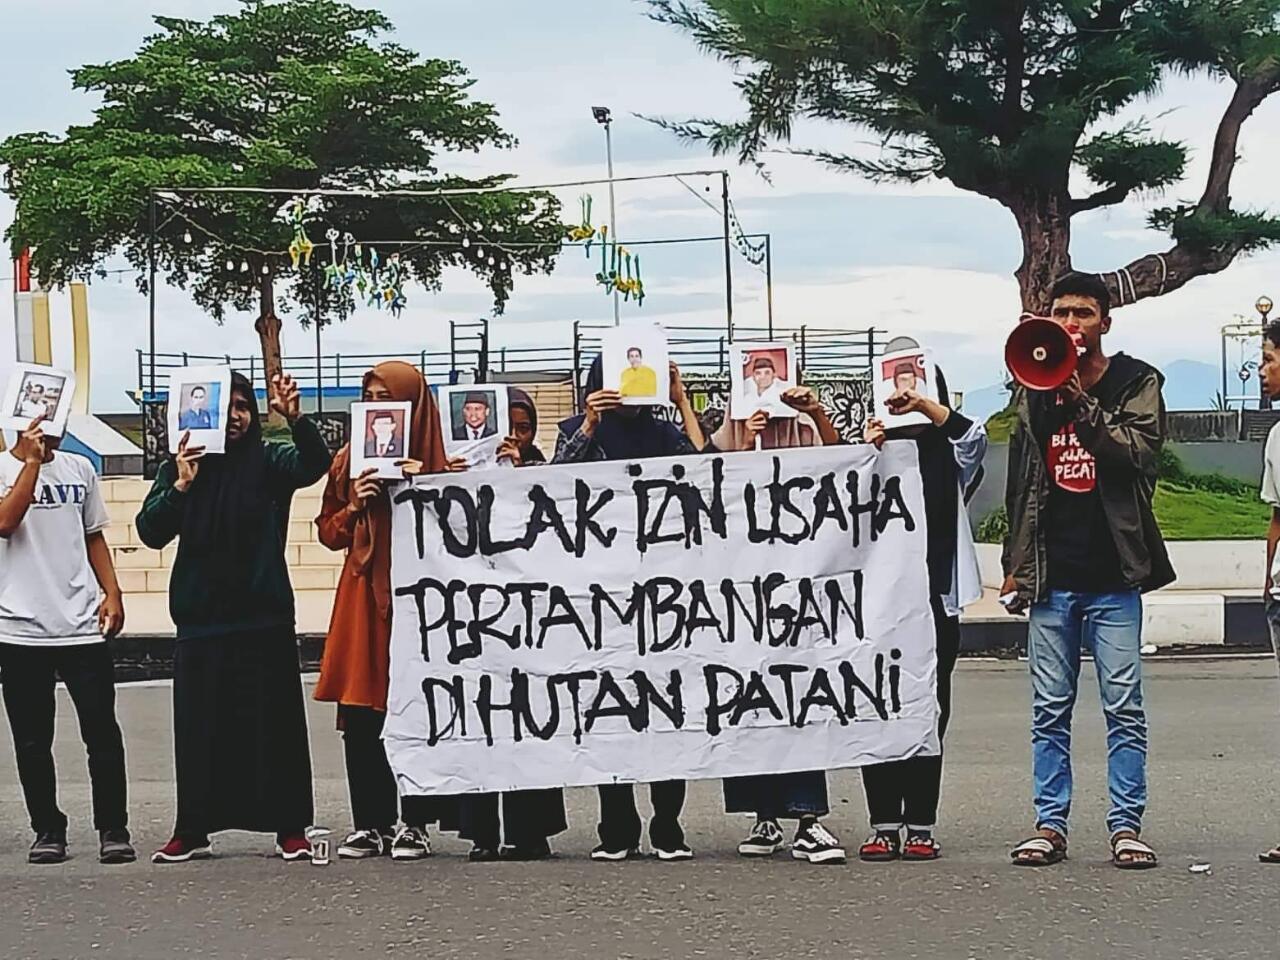 TOLAK IZIN USAHA
PERTAMBANGAN
DI HUTAN PATANI
RAVE
PECAT